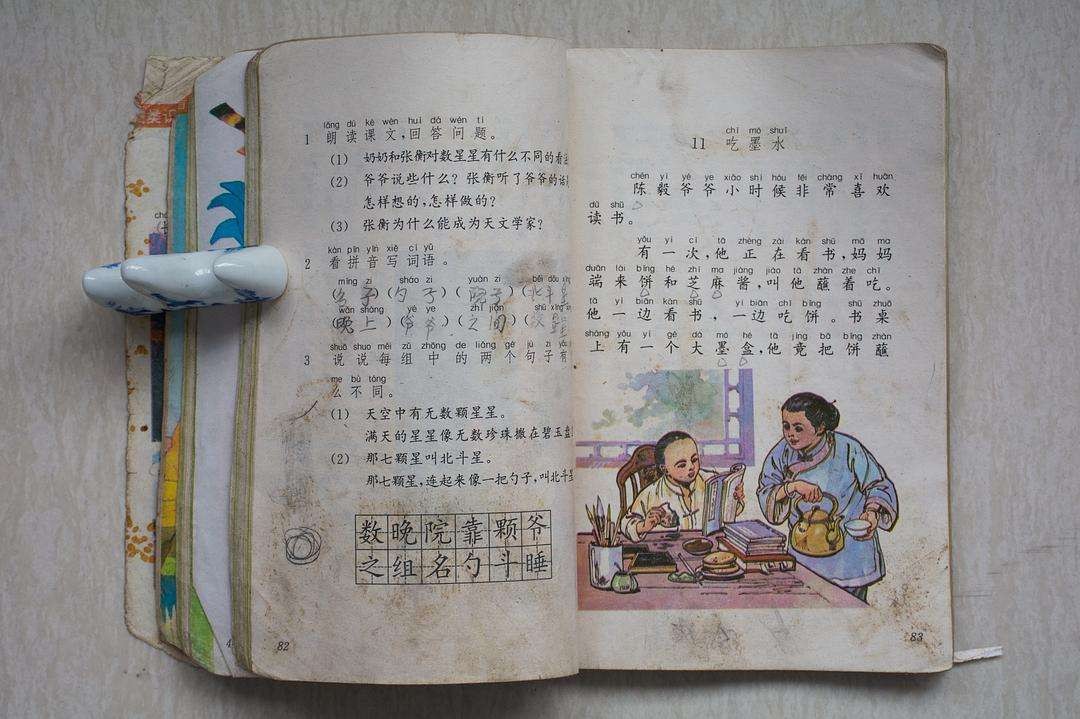 lǎng dú kè wén huí dá wèn tí
1 朗读课文,回答问题。
(1) 奶奶和张衡对数星星有什么不同的看
(2) 爷爷说些什么?张衡听了爷爷的话
怎样想的,怎样做的?
(3) 张衡为什么能成为天文学家?
kàn pīn yīn xiě cí yǔ
2 看拼音写词语。
míng zi sháo zi yuàn zi běi dǒu xīng
(名子)(勺子)(院子)(北斗星
wǎn shàng yé ye zhī jiān shǔ xīng
(晚上)(爷爷)(之间)(数星
shuō shuo měi zǔ zhōng de liǎng gè jù zi yǒu
3 说说每组中的两个句子有
me bù tóng
么不同。
(1) 天空中有无数颗星星。
满天的星星像无数珍珠撒在碧玉盘
(2) 那七颗星叫北斗星。
那七颗星,连起来像一把勺子,叫北斗星
数晚院靠颗爷
之组名勺斗睡
4
82
chī mò shuǐ
11 吃墨水
chén yì yé ye xiǎo shí hòu fēi cháng xǐ huān
陈毅爷爷小时候非常喜欢
dú shū
读书。
yǒu yí cì tā zhèng zài kàn shū mā ma
有一次,他正在看书,妈妈
duān lái bǐng hé zhī ma jiàng jiào tā zhàn zhe chī
端来饼和芝麻酱,叫他蘸着吃。
tā yì biān kàn shū yì biān chī bǐng shū zhuō
他一边看书,一边吃饼。书桌
shàng yǒu yí gè dà mò hé tā jìng bǎ bǐng zhàn
上有一个大墨盒,他竟把饼蘸
83